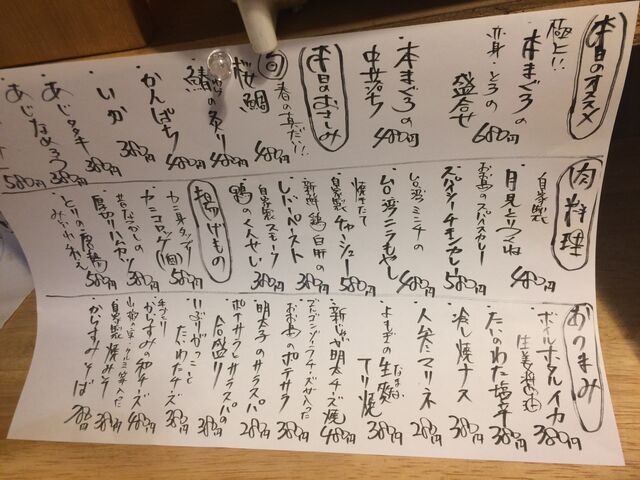 本日のオススメ
極上!!
本まぐろの
赤身 とろの
盛合せ 680円
本まぐろの
中落ち 480円
本日のおさしみ
旬 春の真だい!!
桜鯛 480円
鯖の炙り 480円
かんぱち 480円
いか 380円
あじタタキ 380円
あじなめろう 380円
580円
肉料理
自家製
月見とりつくね 480円
お島のスパイスカレー
スパイシーチキンカレー 580円
台湾ミンチの
台湾ニラもやし 480円
焼きたて
自家製チャーシュー 580円
新鮮鶏白肝の
レバペースト 380円
自家製スモーク
鴨のくんせい 380円
揚げもの
カニ身タップリ
カニコロッケ(1個) 580円
昔なつかしの
厚切りハムカツ 380円
580円
おつまみ
生姜醤油
ボイルホタルイカ 380円
たいのわた塩辛 380円
冷し焼ナス 380円
人参たマリネ 280円
よもぎの生麩
なまふ
テリ焼 380円
新じゃが明太チーズ焼 480円
ゴルゴンゾーラチーズが入った
お島のポテサラ 380円
明太子のサラスパ 280円
ポテサラとサラスパの
合盛り 380円
いぶりがっこと
たたわたチーズ 380円
手づくり
からすみの和チーズ 480円
自家製焼みそ 380円
からすみそば